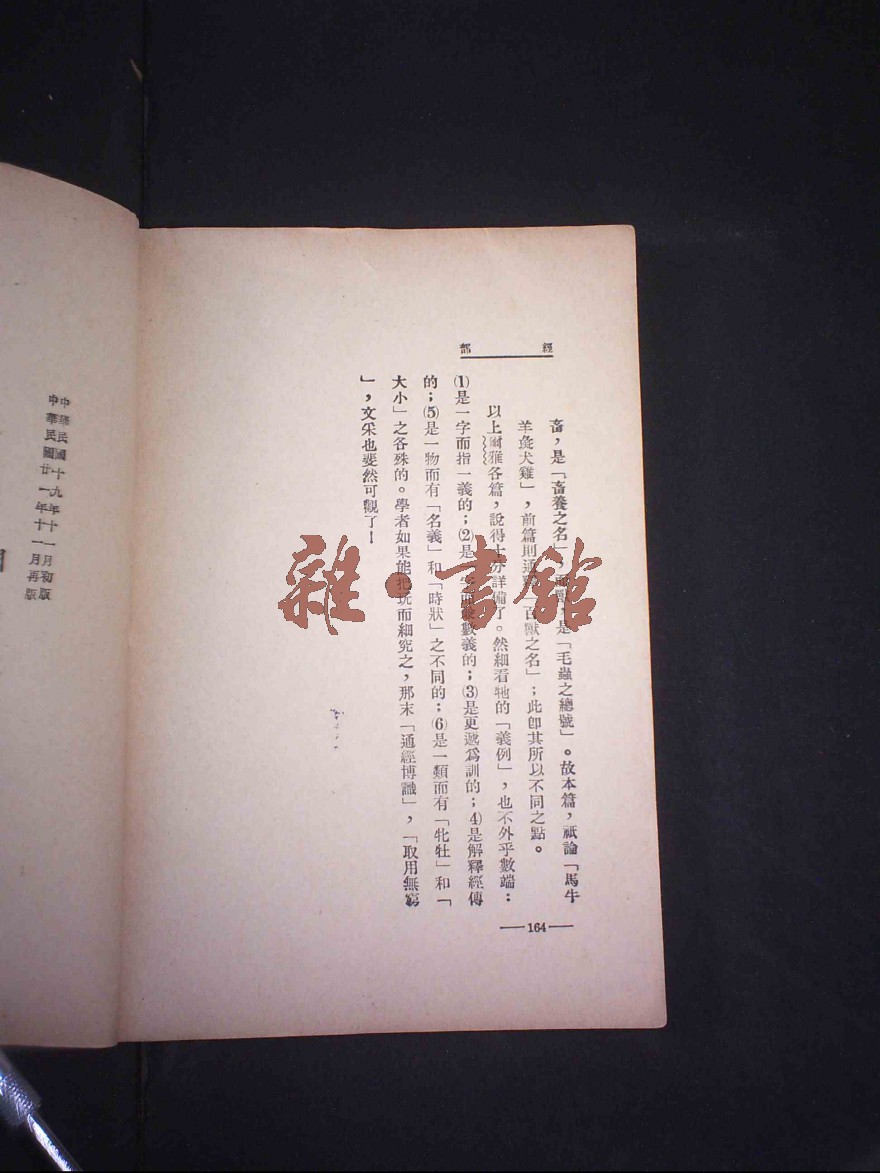 經部
畜，是「畜養之名」，是「毛蟲之總號」。故本篇，祇論「馬牛
羊彘犬雞」，前篇則通百獸之名」；此卽其所以不同之點。
以上爾雅各篇，說得十分詳備了。然細看牠的「義例」，也不外乎數端：
⑴是一字而指一義的；⑵是數義的；⑶是更遞爲訓的；4)是解釋經傳
的；⑸是一物而有「名義」和「時狀」之不同的；⑹是一類而有「牝牡」和「
大小」之各殊的。學者如果能把玩而細究之，那末「通經博識」，「取用無窮
」，文采也斐然可觀了！
164
雜·書館
中華民國十九年十一月初版
中華民國廿一年十一月再版